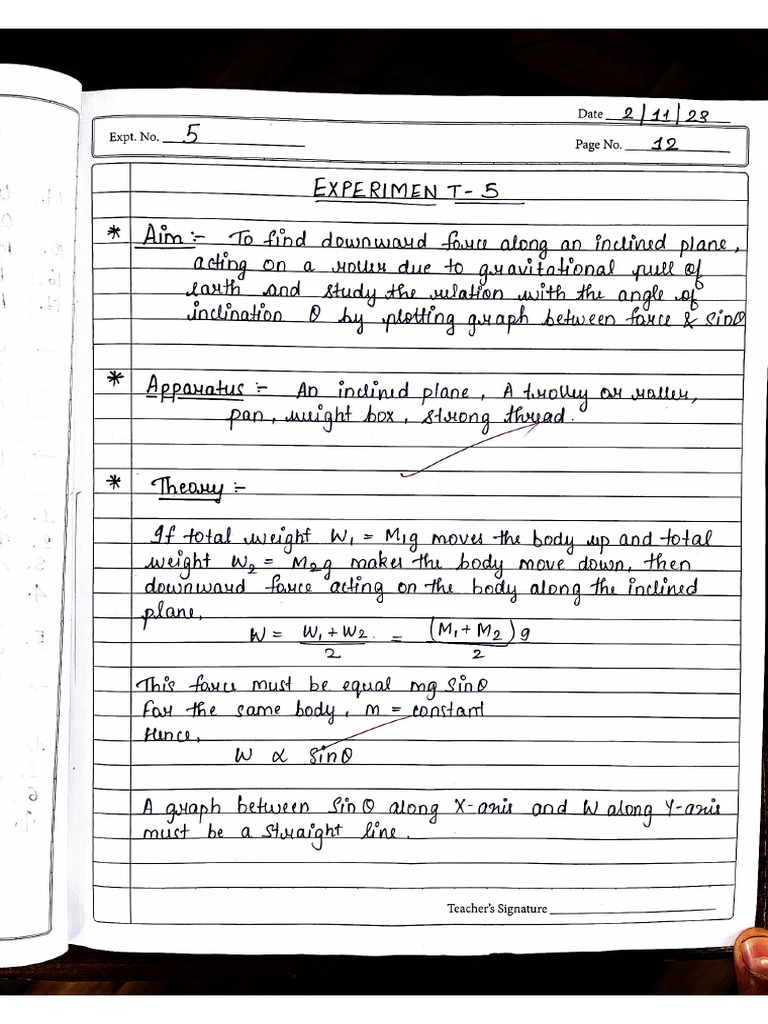 Date 2/11/23
Expt. No. 5
Page No. 12
EXPERIMENT-5
* Aim :- To find downward force along an inclined plane,
acting on a roller due to gravitational pull of
earth and study the relation with the angle of
inclination θ by plotting graph between force & sinθ
* Apparatus :- An inclined plane, A trolley or roller,
pan, weight box, strong thread.
* Theory :-
If total weight W₁ = M₁g moves the body up and total
weight W₂ = M₂g makes the body move down, then
downward force acting on the body along the inclined
plane,
W = W₁+W₂/2 = (M₁+M₂)g/2
This force must be equal mg sinθ
For the same body, m = constant
Hence,
W ∝ sinθ
A graph between sinθ along X-axis and W along Y-axis
must be a straight line.
Teacher's Signature